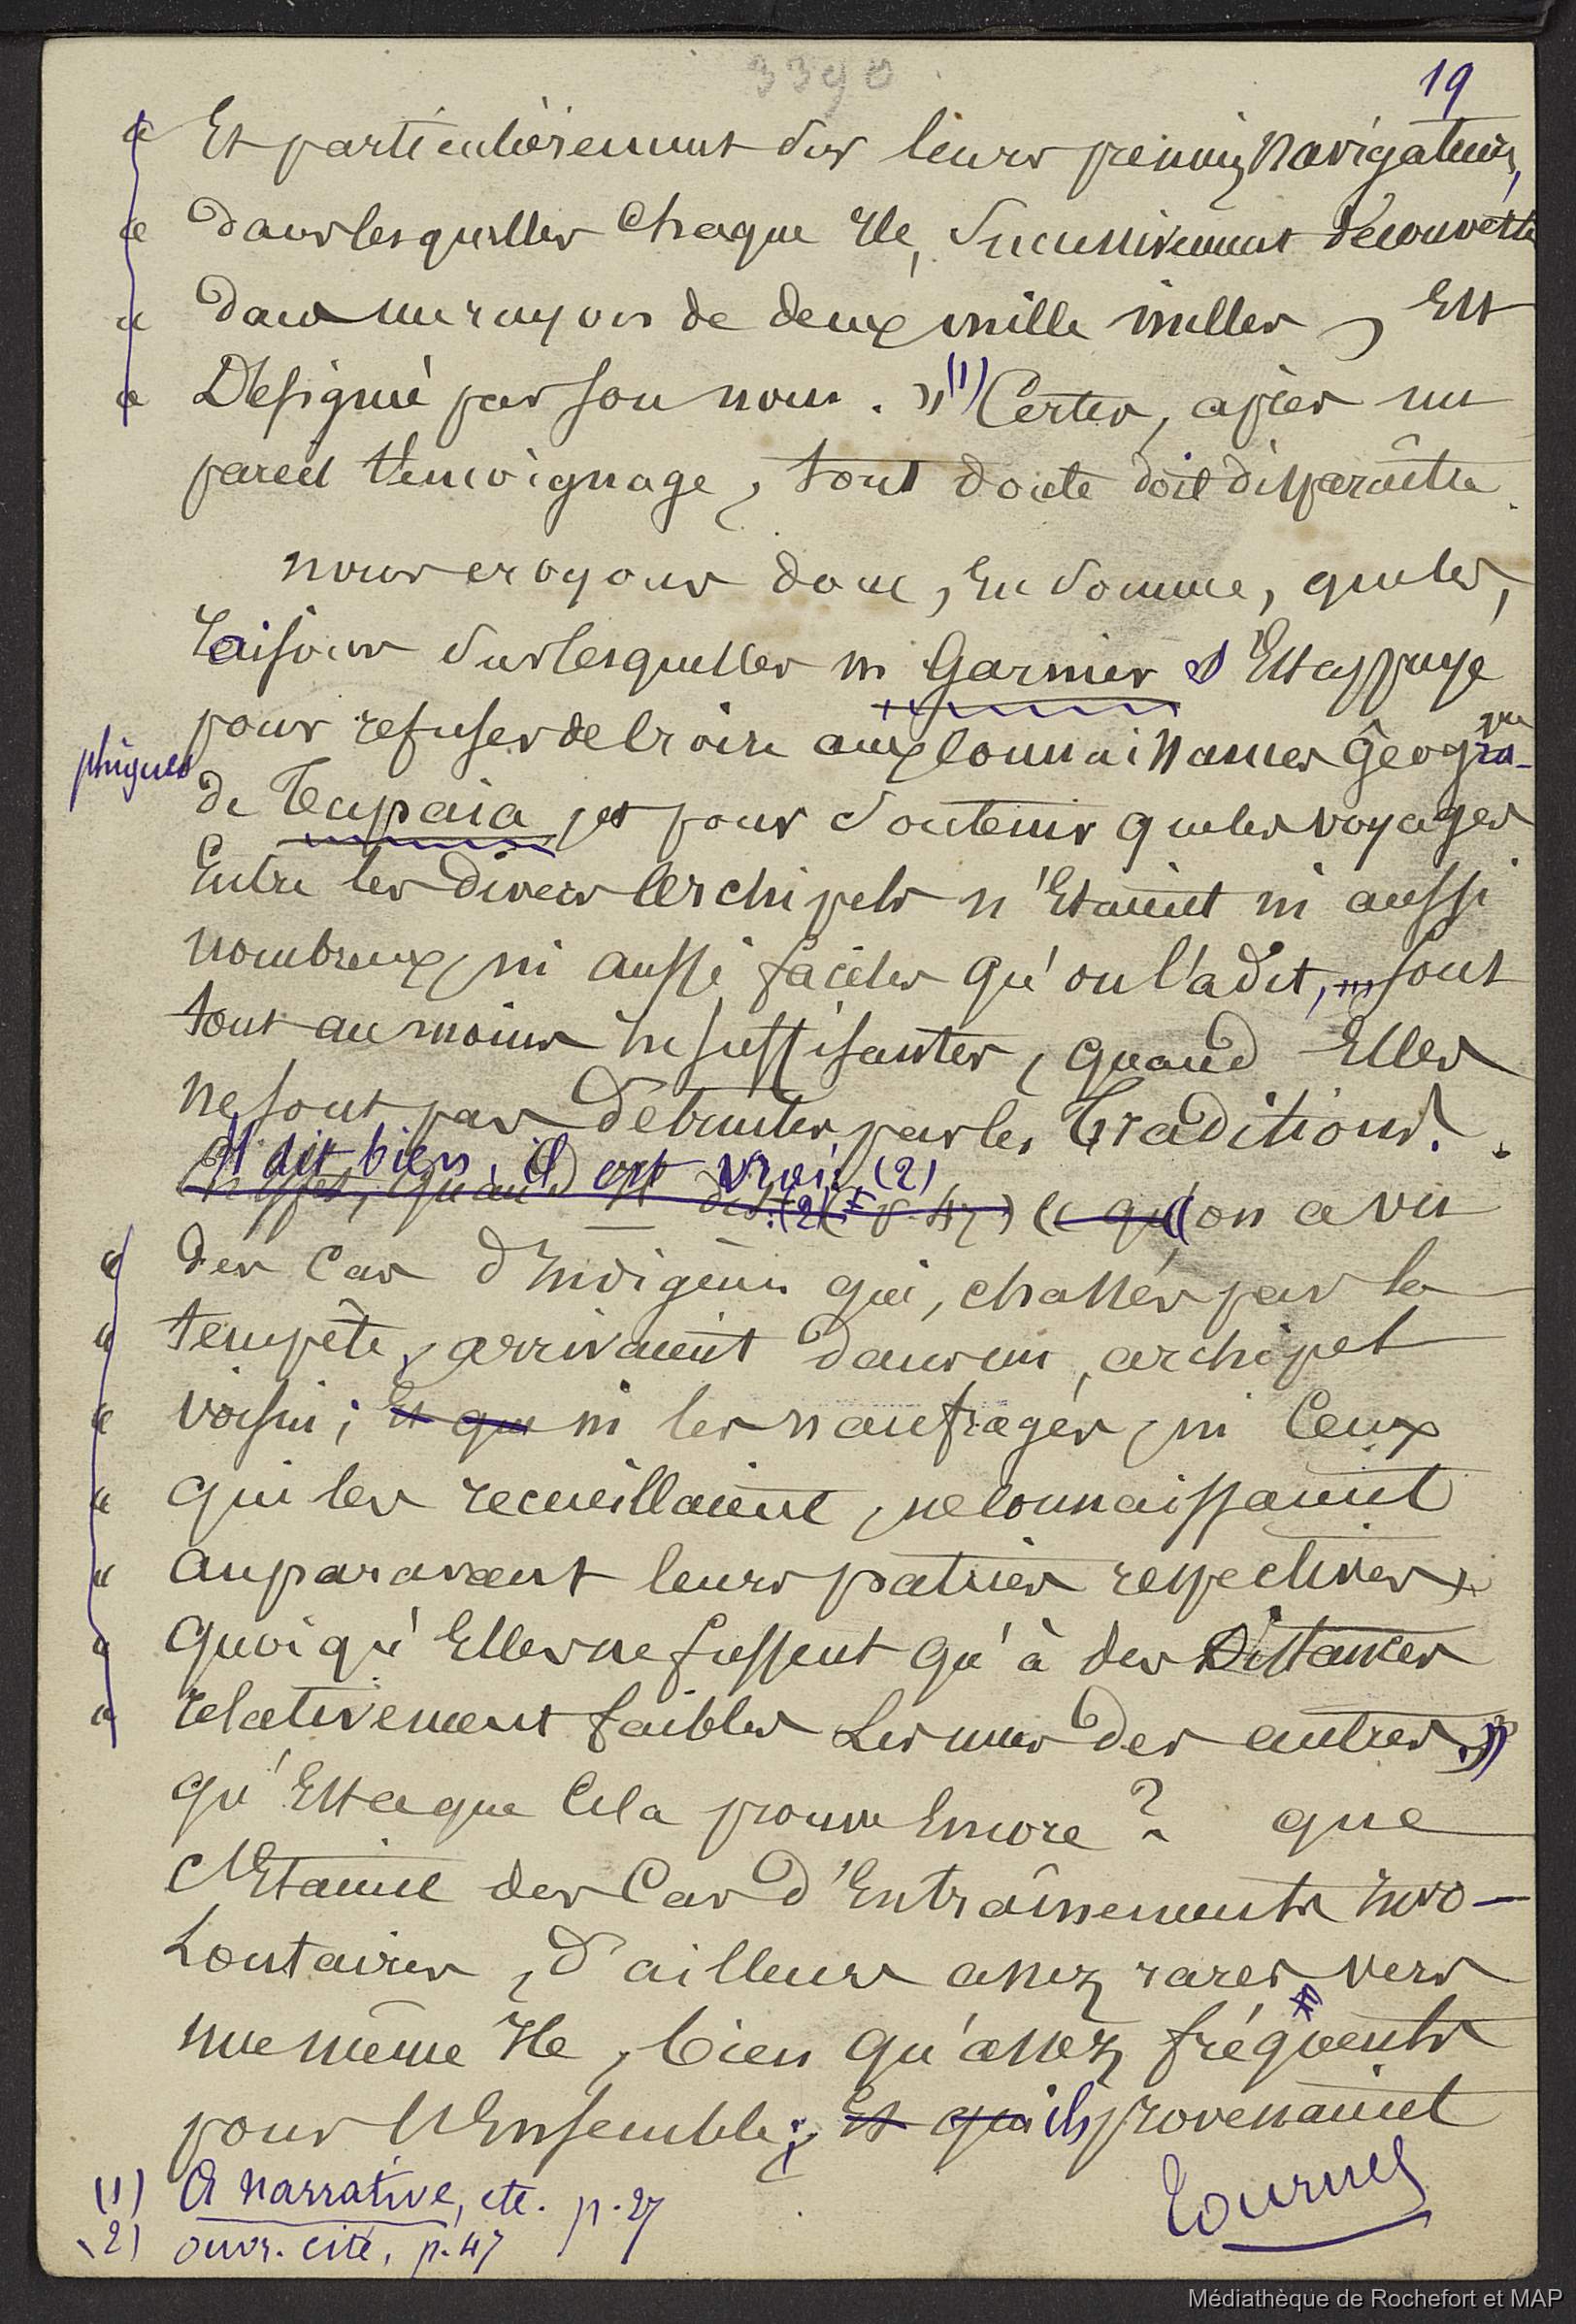 3390
19
« Et particulièrement sur leurs premiers navigateurs,
« dans lesquelles chaque Ile, successivement découverte
« dans un rayon de deux mille milles, Est
« Désigné par son nom. » (1) Certes, après un
pareil témoignage, tout doute doit disparaître.
nous croyons donc, En somme, que les,
raisons sur lesquelles m Garnier s'Est appuyé
pour refuser de croire aux connaissances géogra-
phiques
de Tupaia, et pour soutenir que les voyages
Entre les divers Archipels n'Etaient ni aussi
nombreux, ni aussi faciles qu'on l'a dit, sont
tout au moins insuffisantes, quand Elles
ne sont pas détruites par les Traditions.
Il dit bien, il est vrai: (2)
En effet, quand Il dit: (2) (p. 47) « qu' « on a vu
« des cas d'Indigènes qui, chassés par la
« tempête, arrivaient dans un archipel
« voisin; Et que ni les naufragés, ni Ceux
« qui les recueillaient, ne connaissaient
« auparavant leurs patries respectives,
« quoiqu'Elles ne fussent qu'à des Distances
« relativement faibles Les unes des autres. »
qu'Est ce que Cela prouve Encore? que
c'Etaient des Cas d'Entraînements Invo-
Lontaires, d'ailleurs assez rares vers
une même Ile, bien qu'assez fréquents
pour l'Ensemble; Et qui ils provenaient
(1) A narrative, etc. p. 27
(2) ouvr. cité, p. 47
Tournez
Médiathèque de Rochefort et MAP